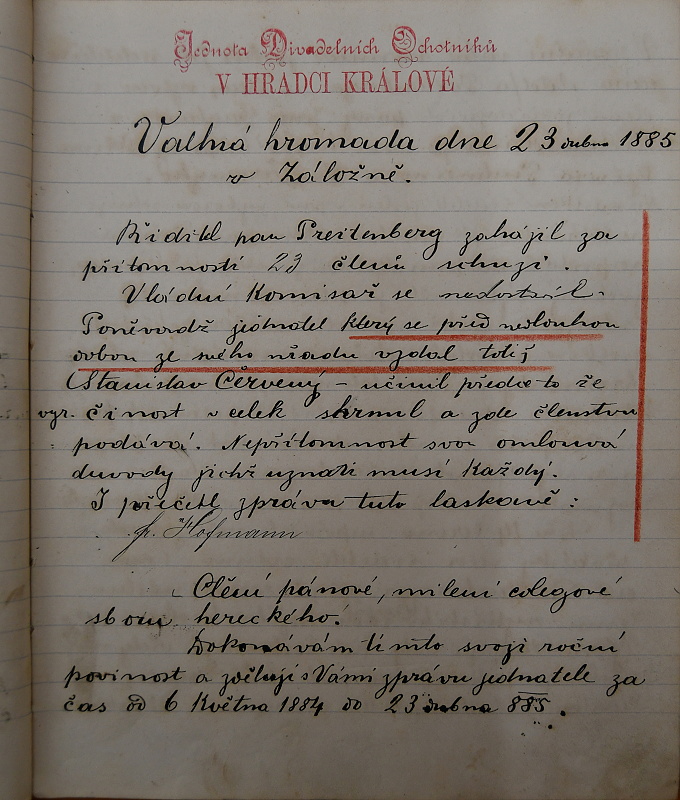 Jednota Divadelních Ochotníků
V HRADCI KRÁLOVÉ
Valná hromada dne 23 dubna 1885
v Záložně.
Řiditel pan Preitenberg zahájil za
přítomností 23 členů schuzi.
Vládní Komisař se nedostavil.
Poněvadž jednatel který se před nedlouhou
dobou ze svého uřadu vzdal totiž
Stanislav Červený – učinil předce to že
vyr. činost v celek shrnul a zde členstvu
podává. Nepřítomnost svou omlouvá
duvody jichž uznati musí Každý.
I přečetl zprávu tuto laskavě:
fr. Hofmann
Ctění pánové, milení colegové
sboru hereckého!
Dokonávám tímto svoji roční
povinost a zděluji s Vámi zprávu jednatele za
čas od 6 Května 1884 do 23 dubna 885.